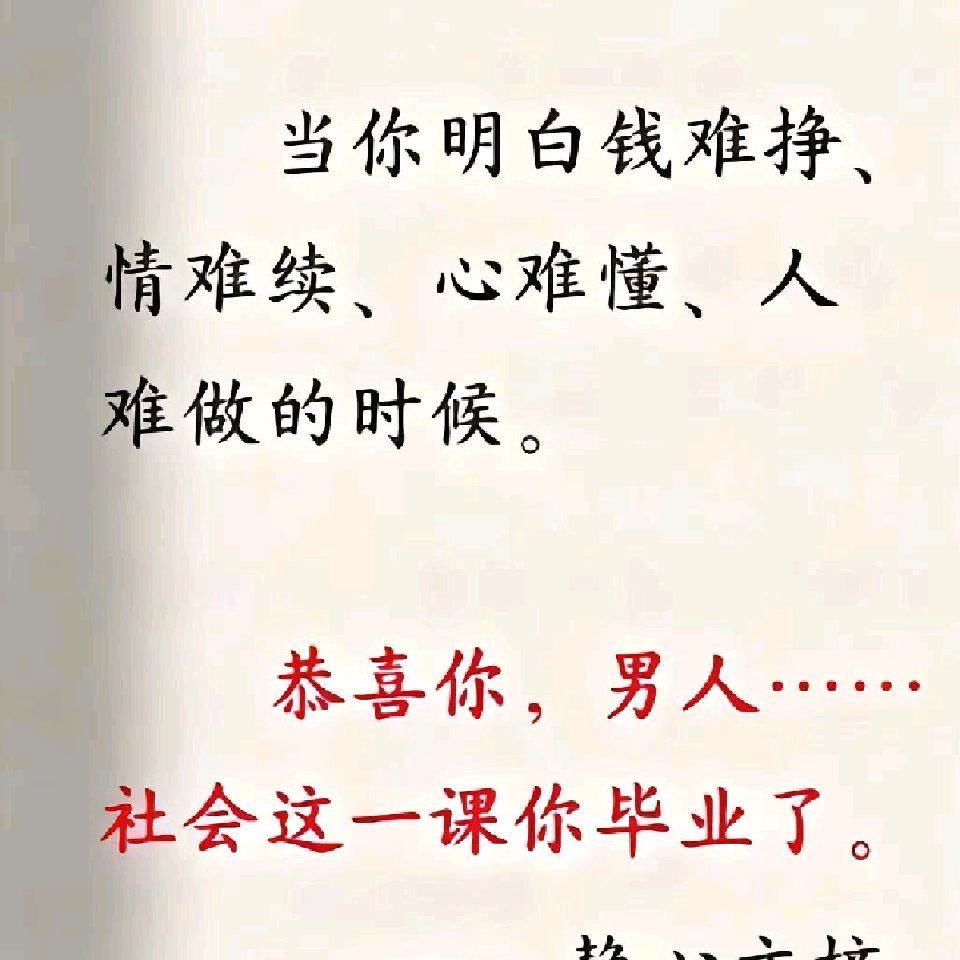 当你明白钱难挣、
情难续、心难懂、人
难做的时候。
恭喜你，男人……
社会这一课你毕业了。